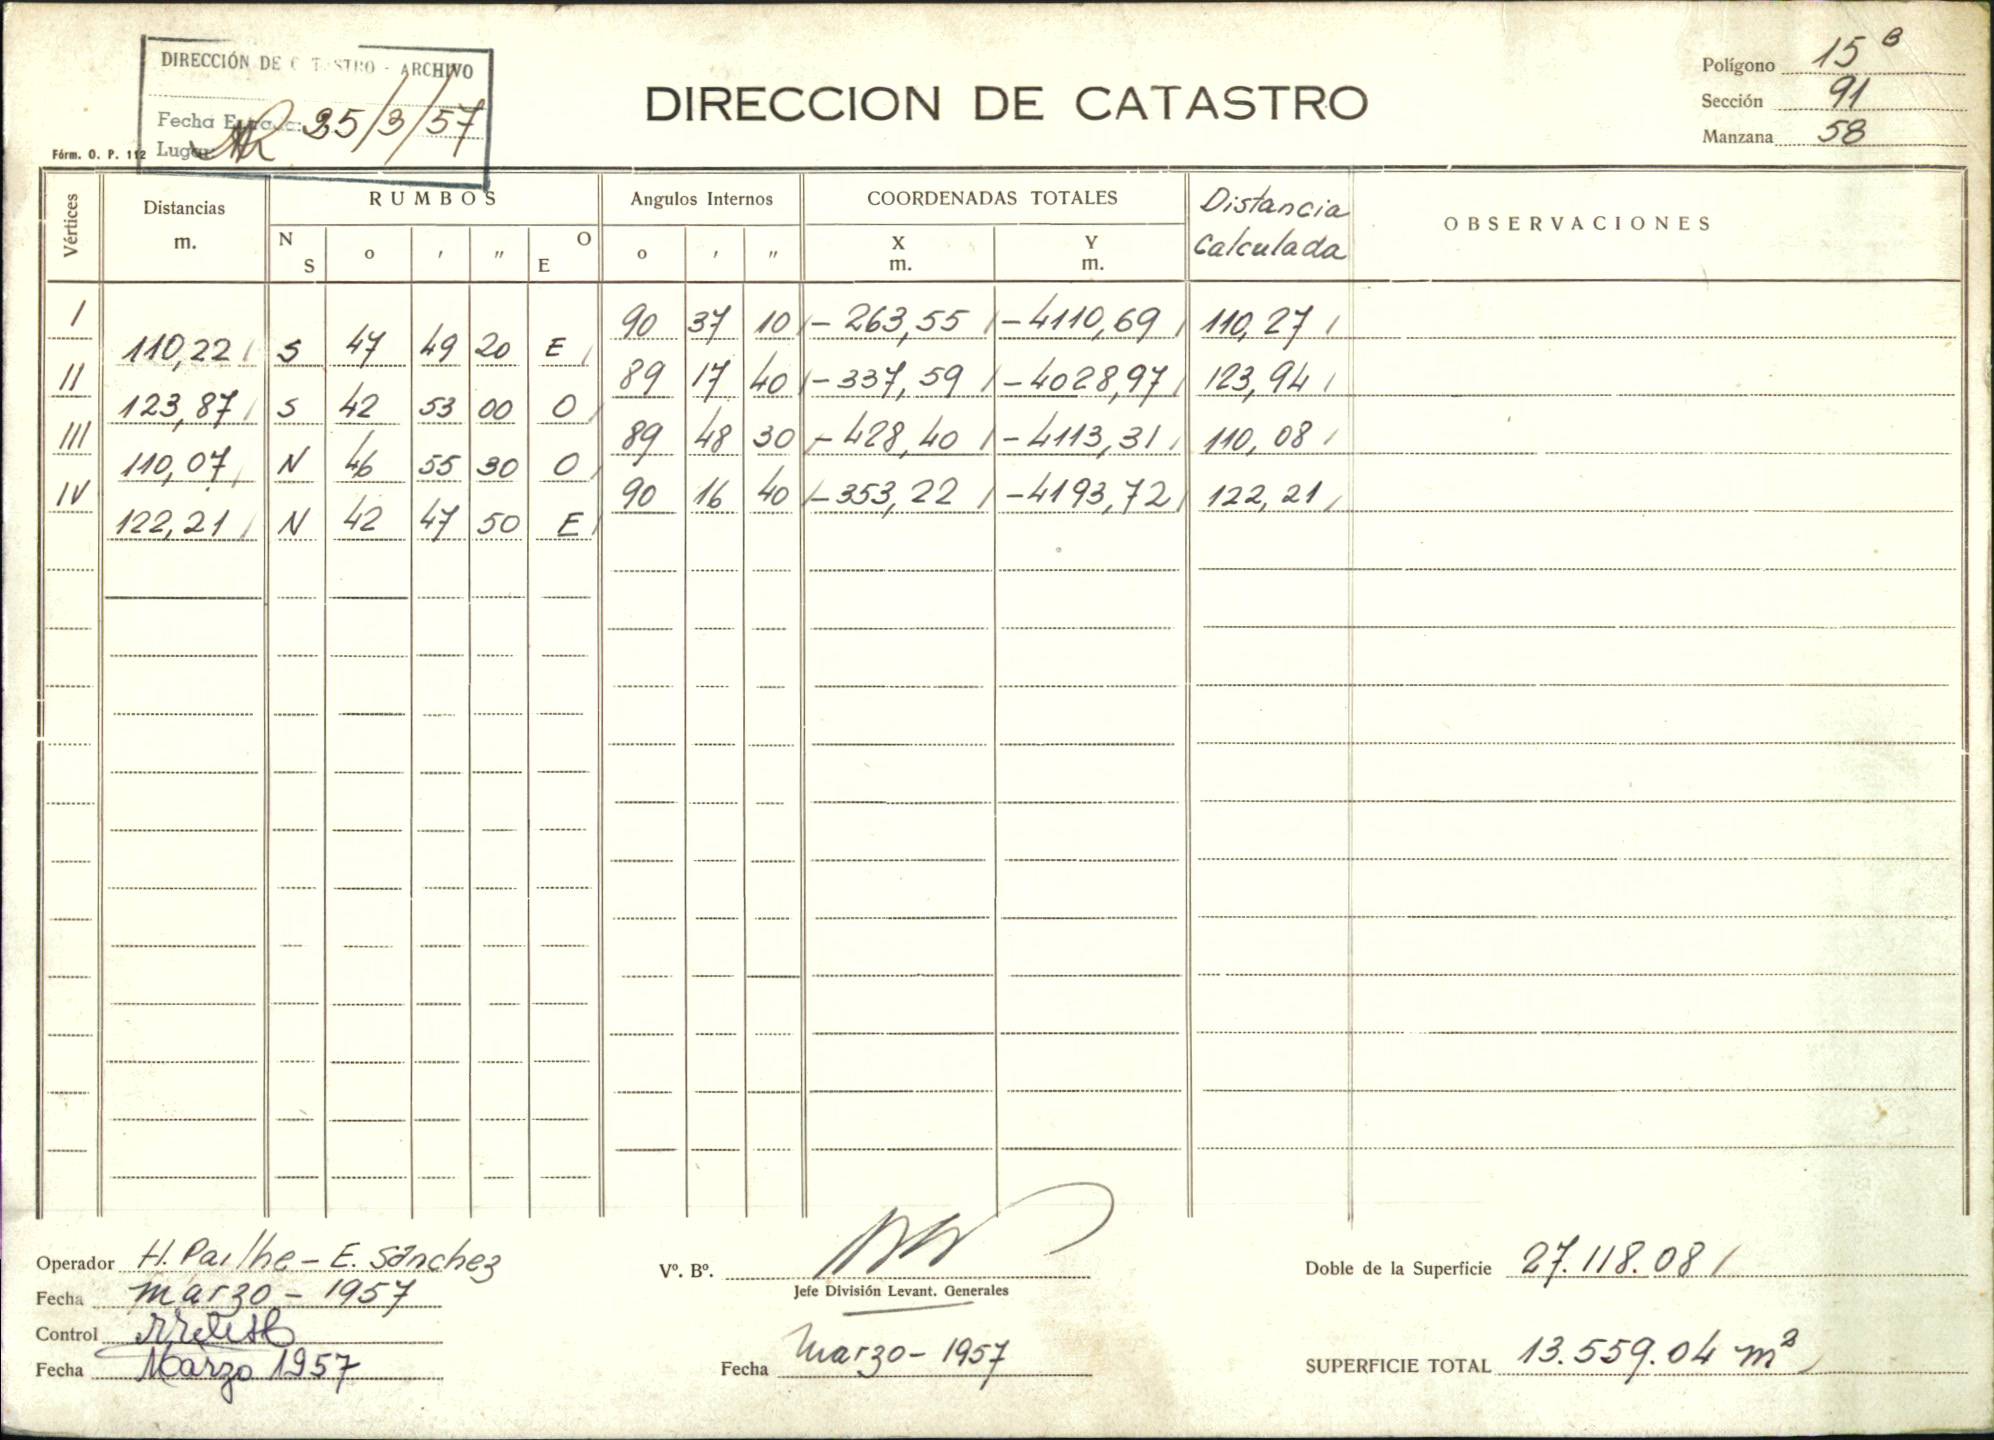 DIRECCIÓN DE CATASTRO - ARCHIVO
Fecha Entrada: 25/3/57
Lugar
Fórm. O. P. 112
DIRECCION DE CATASTRO
Polígono 15 B
Sección 91
Manzana 58
Vértices Distancias m. RUMBOS Angulos Internos COORDENADAS TOTALES Distancia Calculada OBSERVACIONES
N S o ' " O E o ' " X m. Y m.
I 90 37 10 - 263,55 - 4110,69 110,27
110,22 S 47 49 20 E
II 89 17 40 - 337,59 - 4028,97 123,94
123,87 S 42 53 00 O
III 89 48 30 - 428,40 - 4113,31 110,08
110,07 N 46 55 30 O
IV 90 16 40 - 353,22 - 4193,72 122,21
122,21 N 42 47 50 E
Operador H. Pailhe - E. Sánchez
Fecha Marzo - 1957
Control
Fecha Marzo 1957
Vº. Bº.
Jefe División Levant. Generales
Fecha Marzo - 1957
Doble de la Superficie 27.118.08
SUPERFICIE TOTAL 13.559.04 m2